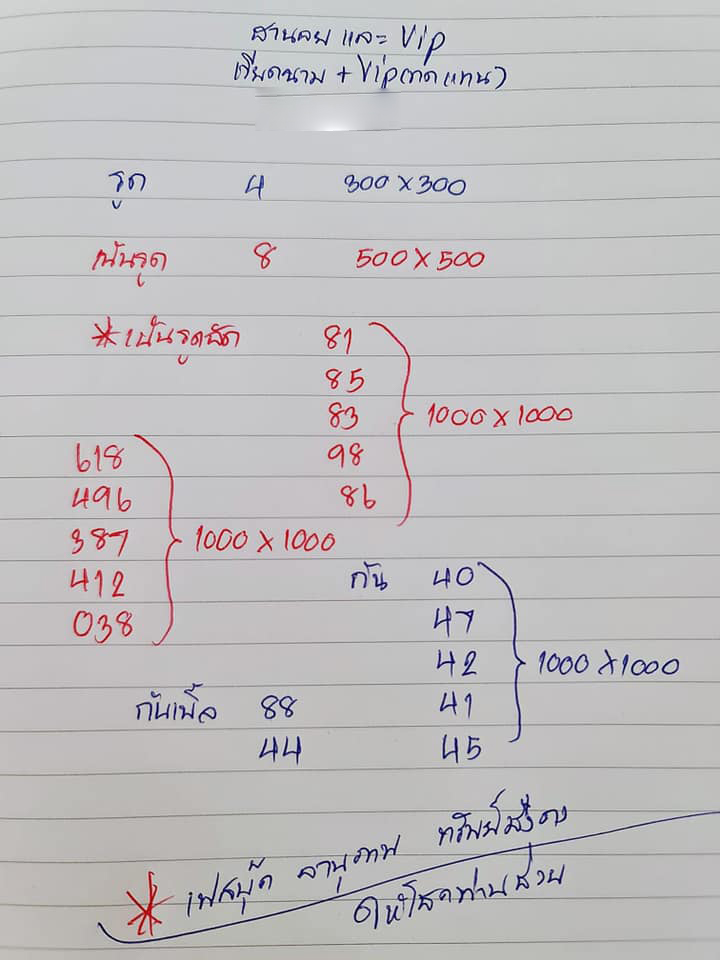 ฮานอย และ Vip
เวียดนาม + Vip(ทดแทน)
รูด 4 300 x 300
เน้นรูด 8 500 x 500
*เน้นรูดจัด 81
85
83 1000 x 1000
98
86
618
496
387 1000 x 1000
412
038
กัน 40
47
42 1000 x 1000
41
45
กันเบิ้ล 88
44
* เฟสบุ๊ค อานุภาพ ทรัพย์
ให้โชคท่าน